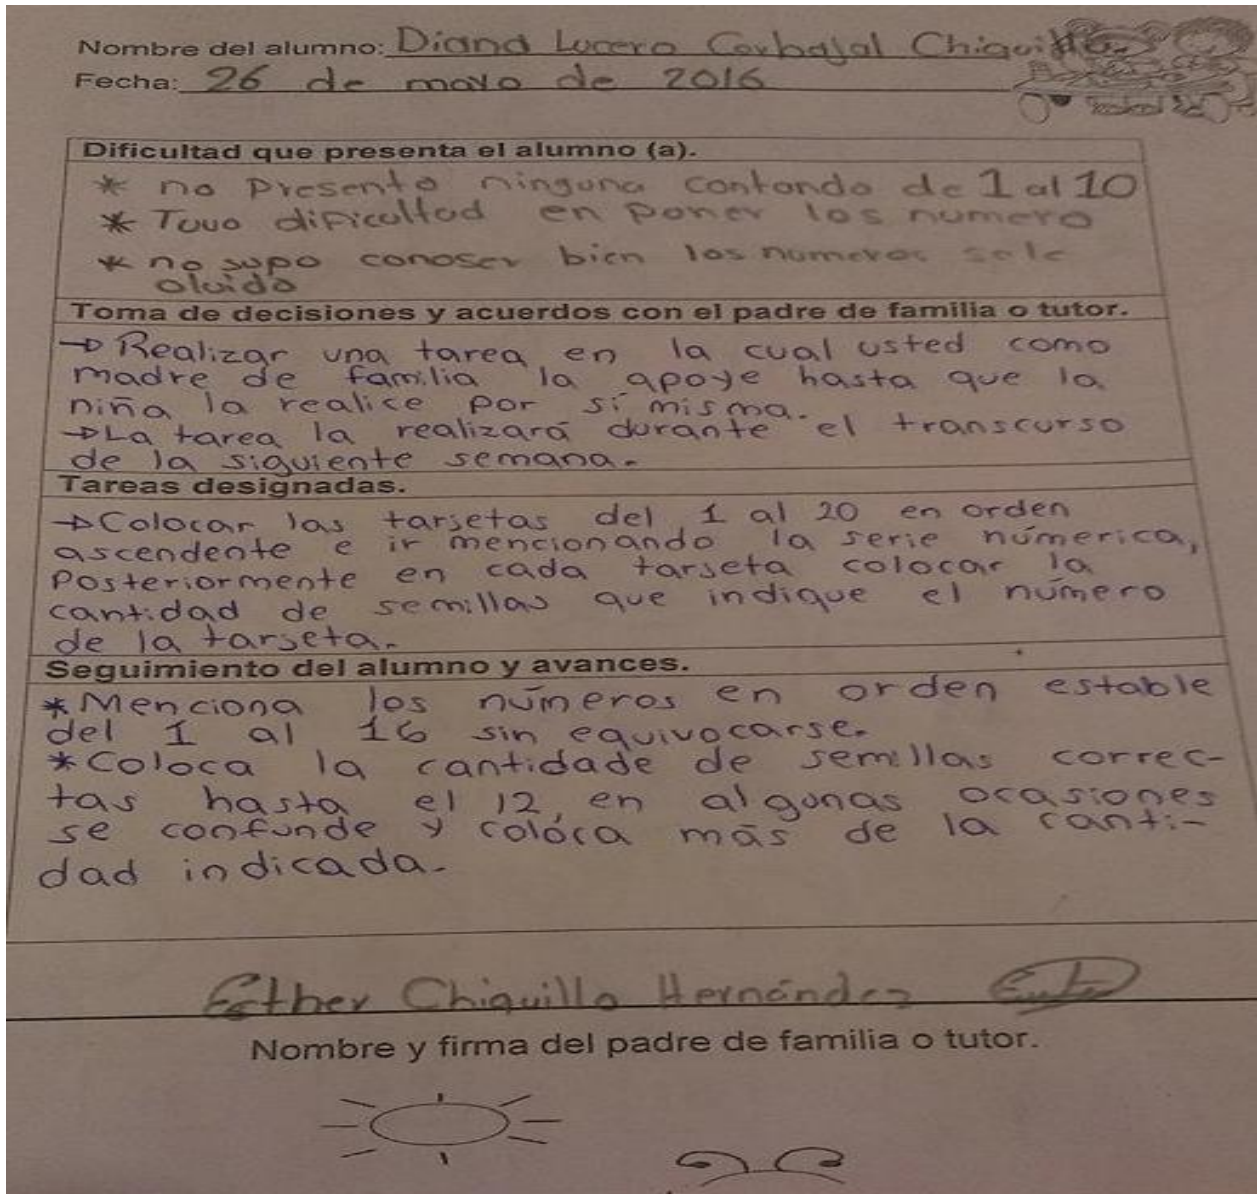 Nombre del alumno: Diana Lucero Carbajal Chiquillo
Fecha: 26 de mayo de 2016
Dificultad que presenta el alumno (a).
* no Presento ninguna contando de 1 al 10
* Tuvo dificultad en poner los numero
* no supo conoser bien los numeros sele
olvido
Toma de decisiones y acuerdos con el padre de familia o tutor.
→ Realizar una tarea en la cual usted como
madre de familia la apoye hasta que la
niña la realice por sí misma.
→ La tarea la realizará durante el transcurso
de la siguiente semana.
Tareas designadas.
→ Colocar las tarjetas del 1 al 20 en orden
ascendente e ir mencionando la serie númerica,
Posteriormente en cada tarjeta colocar la
cantidad de semillas que indique el número
de la tarjeta.
Seguimiento del alumno y avances.
* Menciona los números en orden estable
del 1 al 16 sin equivocarse.
* Coloca la cantidade de semillas correc-
tas hasta el 12, en algunas ocasiones
se confunde y colóca más de la canti-
dad indicada.
Esther Chiquillo Hernández
Nombre y firma del padre de familia o tutor.